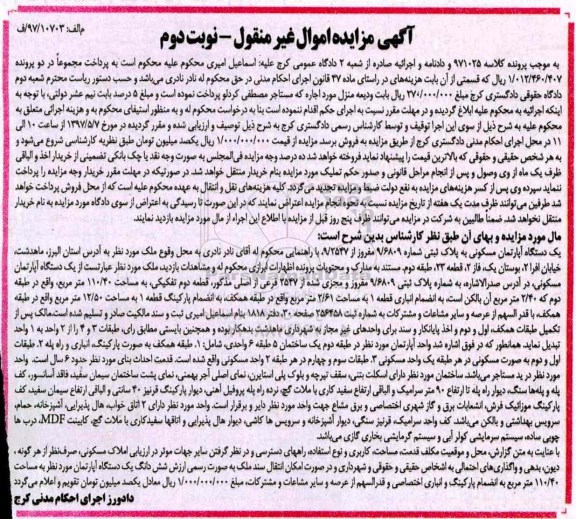 م‌الف: ۹۷/۱۰۷۰۳/ف
آگهی مزایده اموال غیر منقول – نوبت دوم
به موجب پرونده کلاسه ۹۷۱۰۲۵ و دادنامه و اجرائیه صادره از شعبه ۲ دادگاه عمومی کرج علیه: اسماعیل امیری محکوم علیه محکوم است به پرداخت مجموعاً در دو پرونده
۱/۰۱۲/۴۶۰/۴۰۷ ریال که قسمتی از آن بابت هزینه‌های در راستای ماده ۴۷ قانون اجرای احکام مدنی در حق محکوم له نادر نادری می‌باشد و حسب دستور ریاست محترم شعبه دوم
دادگاه حقوقی دادگستری کرج مبلغ ۳۷۰/۰۰۰/۰۰۰ ریال بابت ودیعه منزل مورد اجاره که مستاجر مصطفی کردلو پرداخت نموده است و مبلغ ۵ درصد بابت نیم عشر دولتی، با توجه به
اینکه اجرائیه به محکوم علیه ابلاغ گردیده و در مهلت مقرر نسبت به اجرای حکم اقدام ننموده است بنا به درخواست محکوم له و به منظور استیفای محکوم به و هزینه اجرائی متعلق به
محکوم علیه به شرح ذیل از سوی این اجرا توقیف و توسط کارشناس رسمی دادگستری کرج به شرح ذیل توصیف و ارزیابی شده و مقرر گردیده در مورخ ۱۳۹۷/۵/۷ از ساعت ۱۰ الی
۱۱ در محل اجرای احکام مدنی دادگستری کرج از طریق مزایده به فروش برسد مزایده از قیمت ۱/۰۰۰/۰۰۰/۰۰۰ ریال یکصد میلیون تومان طبق نظریه کارشناسی شروع می‌شود و
به هر شخص حقیقی و حقوقی که بالاترین قیمت را پیشنهاد نماید فروخته خواهد شد ده درصد وجه مزایده فی‌المجلس به صورت وجه نقد یا چک بانکی تضمینی از خریدار اخذ و الباقی
ظرف یک ماه از وی وصول و پس از انجام مراحل قانونی و صدور حکم تملیک مورد مزایده بنام خریدار منتقل خواهد شد. در صورتیکه در مهلت مقرر خریدار وجه مزایده را پرداخت
ننماید سپرده وی پس از کسر هزینه‌های مزایده به نفع دولت ضبط و مزایده تجدید می‌گردد. کلیه هزینه‌های نقل و انتقال به عهده محکوم علیه است که از محل فروش پرداخت خواهد
شد طرفین می‌توانند ظرف مدت یک هفته از تاریخ مزایده نسبت به نحوه انجام مزایده اعتراض نمایند که در این صورت تا رسیدگی به اعتراض از سوی دادگاه مورد مزایده به نام خریدار
منتقل نخواهد شد. ضمناً طالبین به شرکت در مزایده می‌توانند ظرف پنج روز قبل از مزایده با اطلاع این اجراء از مال مورد مزایده بازدید نمایند.
مال مورد مزایده و بهای آن طبق نظر کارشناس بدین شرح است:
یک دستگاه آپارتمان مسکونی به پلاک ثبتی شماره ۹/۶۸۰۹ مفروز از ۹/۲۵۳۷، با راهنمایی محکوم له آقای نادر نادری به محل وقوع ملک مورد نظر به آدرس استان البرز، ماهدشت،
خیابان افرا ۲، بوستان یک، فاز ۲، قطعه ۲۳، طبقه دوم. مستند به مدارک و محتویات پرونده اظهارات ابرازی محکوم له و مشاهدات بازدید، ملک مورد نظر عبارتست از یک دستگاه آپارتمان
مسکونی، در آدرس صدرالاشاره، به شماره پلاک ثبتی ۹/۶۸۰۹ مفروز و مجزی شده از ۲۵۳۷ فرعی از اصلی مذکور، قطعه دوم تفکیکی، به مساحت ۱۱۰/۴۰ متر مربع، واقع در طبقه
دوم که ۲/۴۰ متر مربع آن بالکن است، به انضمام انباری قطعه ۱ به مساحت ۲/۶۱ متر مربع واقع در طبقه همکف، به انضمام پارکینگ قطعه ۱ به مساحت ۱۲/۵۰ متر مربع واقع در طبقه
همکف، با قدر السهم از عرصه و سایر مشاعات و مشترکات به شماره ثبت ۲۵۶۴۵۸ صفحه ۳۰، دفتر ۱۸۱۸ بنام اسماعیل امیری ثبت و سند مالکیت صادر و تسلیم شده است.مالک پس از
تکمیل طبقات همکف، اول و دوم و اخذ پایانکار و سند برای واحدهای غیر مجاز به شهرداری ماهدشت بدهکار بوده و همچنین بایستی مطابق رای، طبقات ۳ و ۴ را از ۲ واحد به ۱ واحد
تبدیل نماید. همانطور که در فوق اشاره شد واحد آپارتمان مورد نظر در طبقه دوم یک ساختمان ۵ طبقه ۶ واحدی، شامل: ۱. طبقه همکف به صورت پارکینگ، انباری و راه پله ۲. طبقات
اول و دوم به صورت مسکونی در هر طبقه یک واحد مسکونی ۳. طبقات سوم و چهارم در هر طبقه ۲ واحد مسکونی واقع شده است. قدمت احداث بنای مورد نظر حدود ۶ سال است. واحد
مورد نظر در ید مستاجر می‌باشد. ساختمان مورد نظر دارای اسکلت بتنی، سقف تیرچه و بلوک پلی استایرن، نمای اصلی آجر بهمنی، نمای پشت ساختمان سیمان سفید، فاقد آسانسور، کف
پله و پله‌ها سنگ، دیوار راه پله تا ارتفاع ۹۰ متر سرامیک و الباقی ارتفاع سفید کاری با ملات گچ، نرده راه پله پروفیل آهنی، دیوار پارکینگ قرنیز ۴۰ سانتی و الباقی ارتفاع سیمان سفید، کف
پارکینگ موزائیک فرش، انشعابات برق و گاز شهری اختصاصی و برق مشاع جهت واحد مورد نظر دایر و برقرار است. واحد مورد نظر دارای ۲ اتاق خواب، هال پذیرایی، آشپزخانه، حمام،
سرویس بهداشتی و بالکن می‌باشد. کف واحد سرامیک، قرنیز سنگی، دیوار آشپزخانه و سرویس ها کاشی، دیوار هال پذیرایی و اتاقها سفیدکاری با ملات گچ، کابینت MDF، درب ها
چوبی ساده، سیستم سرمایشی کولر آبی و سیستم گرمایشی بخاری گازی می‌باشد.
با عنایت به متن گزارش، محل و موقعیت مکلف قدمت، مساحت، کاربری و نوع استفاده، راههای دسترسی و در نظر گرفتن سایر جهات موثر در ارزیابی املاک مسکونی، صرف‌نظر از هر گونه ،
دیون، بدهی و واگذاری‌های احتمالی به اشخاص حقیقی و حقوقی و شهرداری و در صورت امکان انتقال سند ملک به صورت رسمی ارزش شش دانگ یک دستگاه آپارتمان مورد نظر به مساحت
۱۱۰/۴۰ متر مربع به انضمام پارکینگ و انباری اختصاصی و قدرالسهم از عرصه و سایر مشاعات و مشترکات، مبلغ ۱/۰۰۰/۰۰۰/۰۰۰ ریال معادل یکصد میلیون تومان تقویم و اعلام می‌گردد
دادورز اجرای احکام مدنی کرج